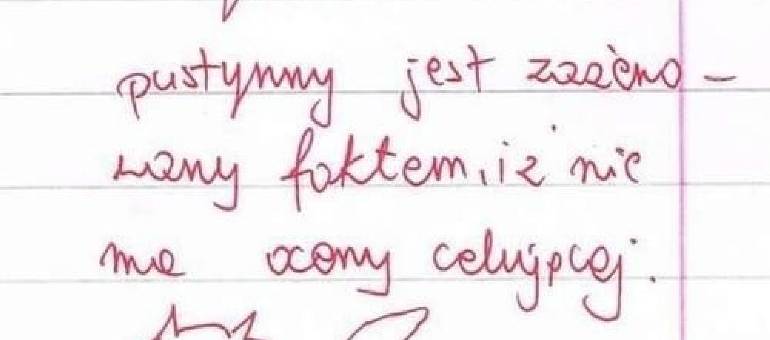 pustynny jest zażeno-
wany faktem, iż nie
ma oceny celującej.